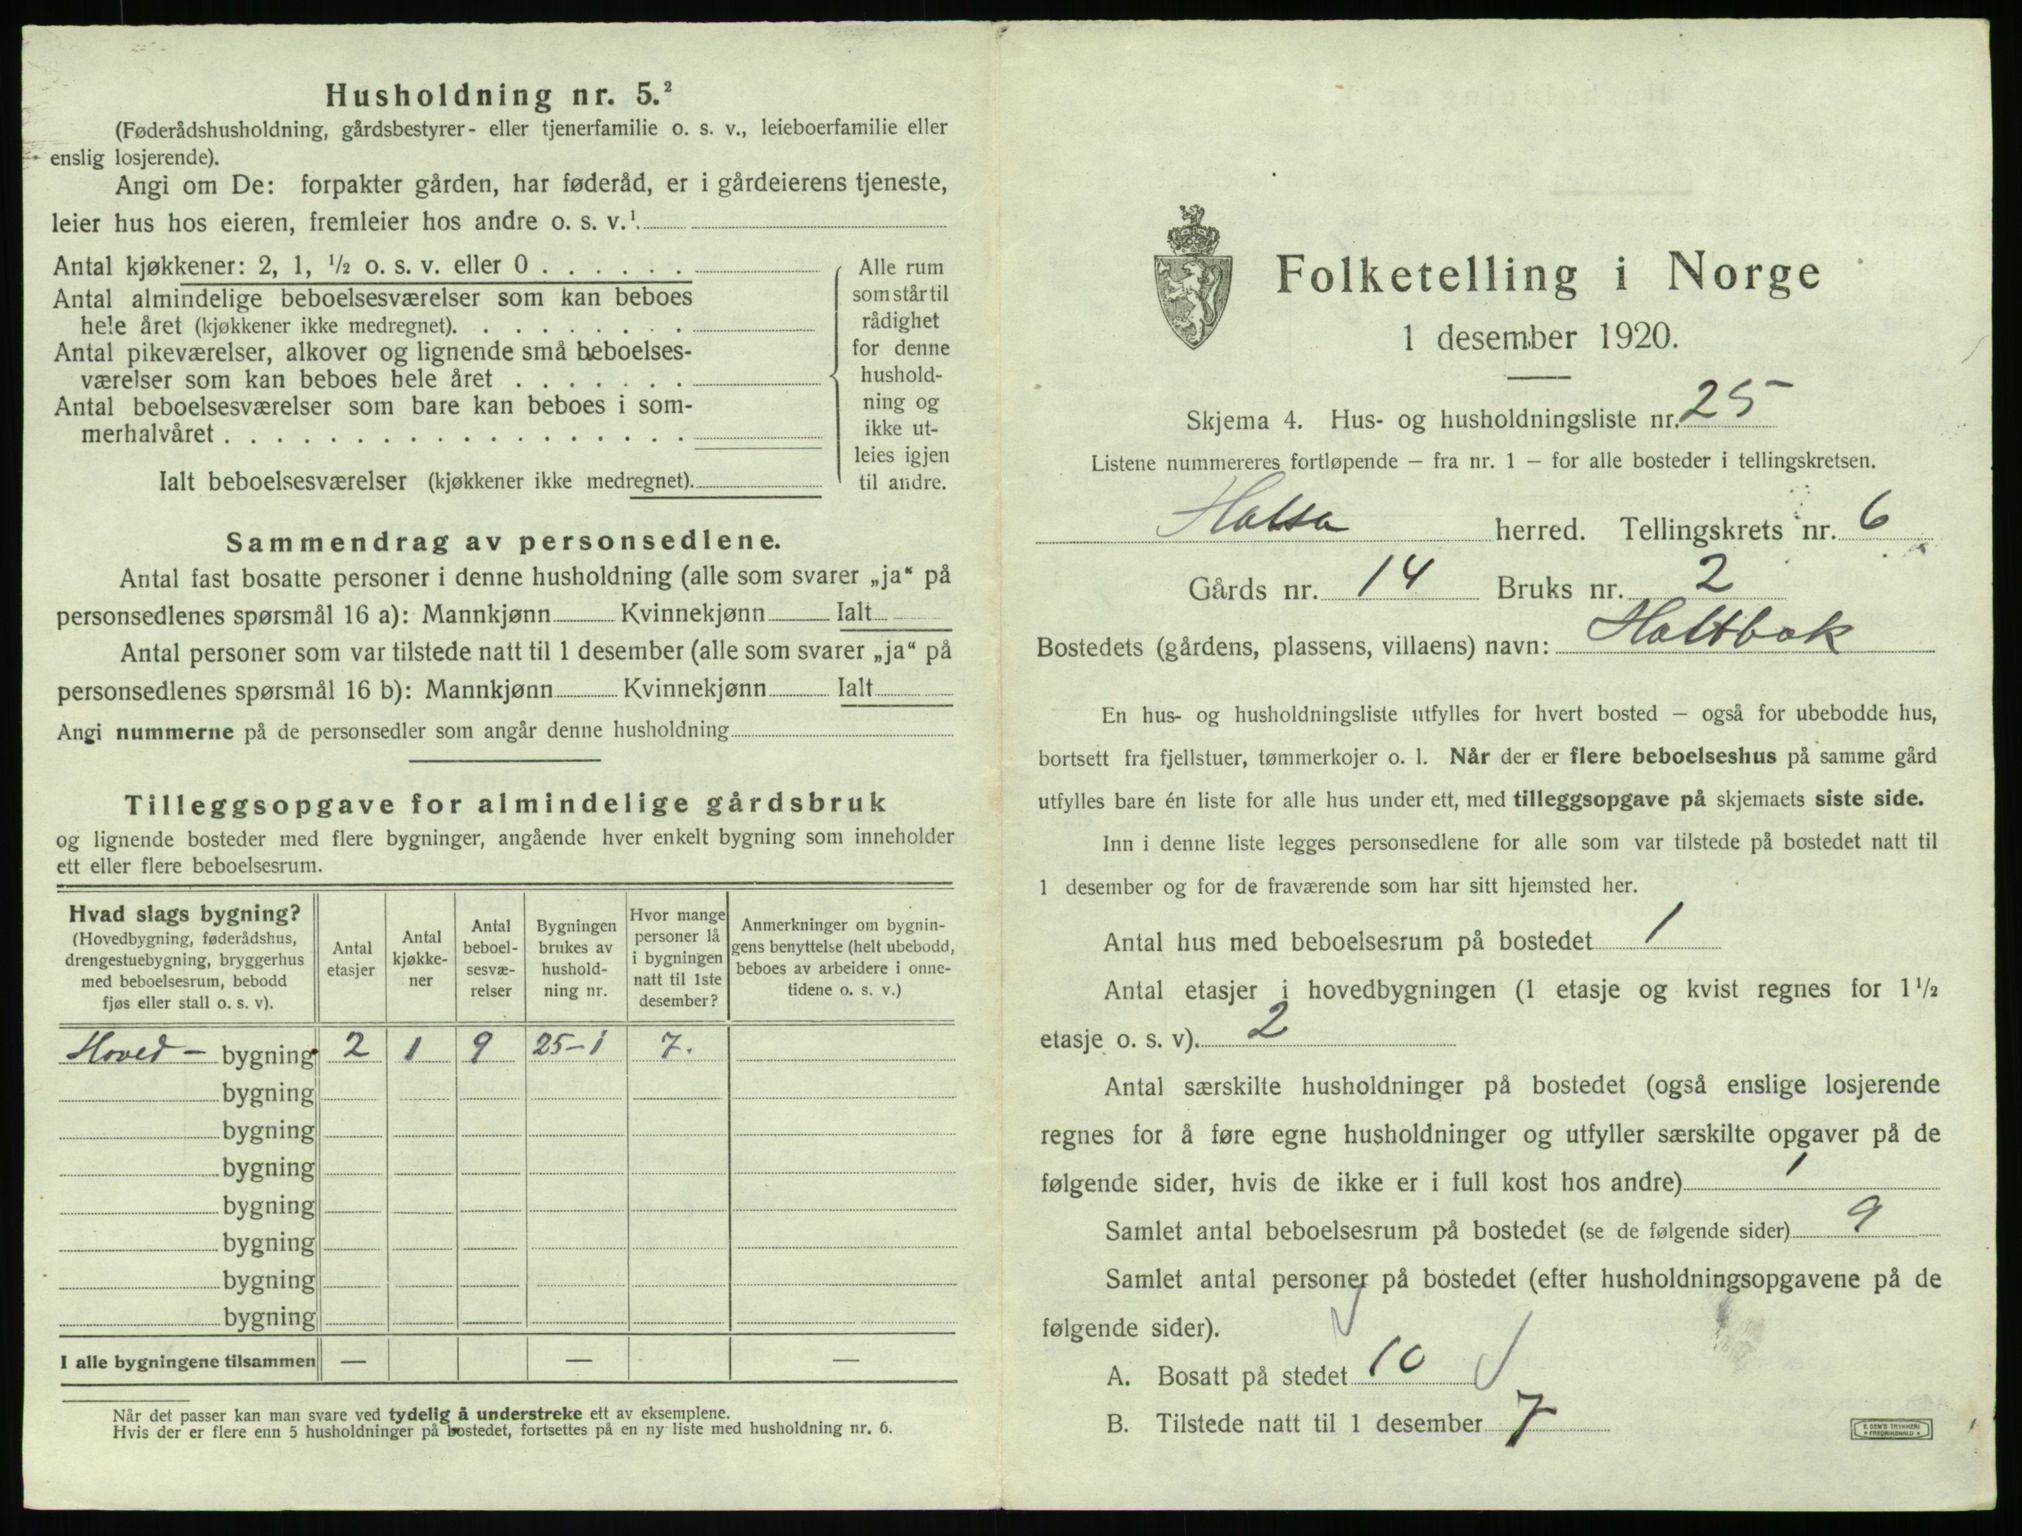 Husholdning nr. 5.²
(Føderådshusholdning, gårdsbestyrer- eller tjenerfamilie o. s. v., leieboerfamilie eller
enslig losjerende).
Angi om De: forpakter gården, har føderåd, er i gårdeierens tjeneste,
leier hus hos eieren, fremleier hos andre o. s. v.¹
Antal kjøkkener: 2, 1, ½ o. s. v. eller 0 . . . . . .
Antal almindelige beboelsesværelser som kan beboes
hele året (kjøkkener ikke medregnet). . . . . . . . .
Antal pikeværelser, alkover og lignende små beboelses-
værelser som kan beboes hele året . . . . . . .
Antal beboelsesværelser som bare kan beboes i som-
merhalvåret . . . . . . . . . . . . . . . . . .
Ialt beboelsesværelser (kjøkkener ikke medregnet).
Alle rum
som står til
rådighet
for denne
hushold-
ning og
ikke ut-
leies igjen
til andre.
Sammendrag av personsedlene.
Antal fast bosatte personer i denne husholdning (alle som svarer „ja“ på
personsedlenes spørsmål 16 a): Mannkjønn Kvinnekjønn Ialt
Antal personer som var tilstede natt til 1 desember (alle som svarer „ja“ på
personsedlenes spørsmål 16 b): Mannkjønn Kvinnekjønn Ialt
Angi nummerne på de personsedler som angår denne husholdning
Tilleggsopgave for almindelige gårdsbruk
og lignende bosteder med flere bygninger, angående hver enkelt bygning som inneholder
ett eller flere beboelsesrum.
Hvad slags bygning?
(Hovedbygning, føderådshus,
drengestuebygning, bryggerhus
med beboelsesrum, bebodd
fjøs eller stall o. s. v).
Antal
etasjer
Antal
kjøkke-
ner
Antal
beboel-
sesvæ-
relser
Bygningen
brukes av
hushold-
ning nr.
Hvor mange
personer lå
i bygningen
natt til 1ste
desember?
Anmerkninger om bygnin-
gens benyttelse (helt ubebodd,
beboes av arbeidere i onne-
tidene o. s. v.)
Hoved- bygning 2 1 9 25-1 7.
bygning
bygning
bygning
bygning
bygning
bygning
bygning
I alle bygningene tilsammen — — —
Når det passer kan man svare ved tydelig å understreke ett av eksemplene.
Hvis der er flere enn 5 husholdninger på bostedet, fortsettes på en ny liste med husholdning nr. 6.
Folketelling i Norge
1 desember 1920.
Skjema 4. Hus- og husholdningsliste nr. 25
Listene nummereres fortløpende – fra nr. 1 – for alle bosteder i tellingskretsen.
Halsa herred. Tellingskrets nr. 6
Gårds nr. 14 Bruks nr. 2
Bostedets (gårdens, plassens, villaens) navn: Haltbak
En hus- og husholdningsliste utfylles for hvert bosted – også for ubebodde hus,
bortsett fra fjellstuer, tømmerkojer o. l. Når der er flere beboelseshus på samme gård
utfylles bare én liste for alle hus under ett, med tilleggsopgave på skjemaets siste side.
Inn i denne liste legges personsedlene for alle som var tilstede på bostedet natt til
1 desember og for de fraværende som har sitt hjemsted her.
Antal hus med beboelsesrum på bostedet 1
Antal etasjer i hovedbygningen (1 etasje og kvist regnes for 1½
etasje o. s. v). 2
Antal særskilte husholdninger på bostedet (også enslige losjerende
regnes for å føre egne husholdninger og utfyller særskilte opgaver på de
følgende sider, hvis de ikke er i full kost hos andre) 1
Samlet antal beboelsesrum på bostedet (se de følgende sider) 9
Samlet antal personer på bostedet (efter husholdningsopgavene på de
følgende sider).
A. Bosatt på stedet 10
B. Tilstede natt til 1 desember 7